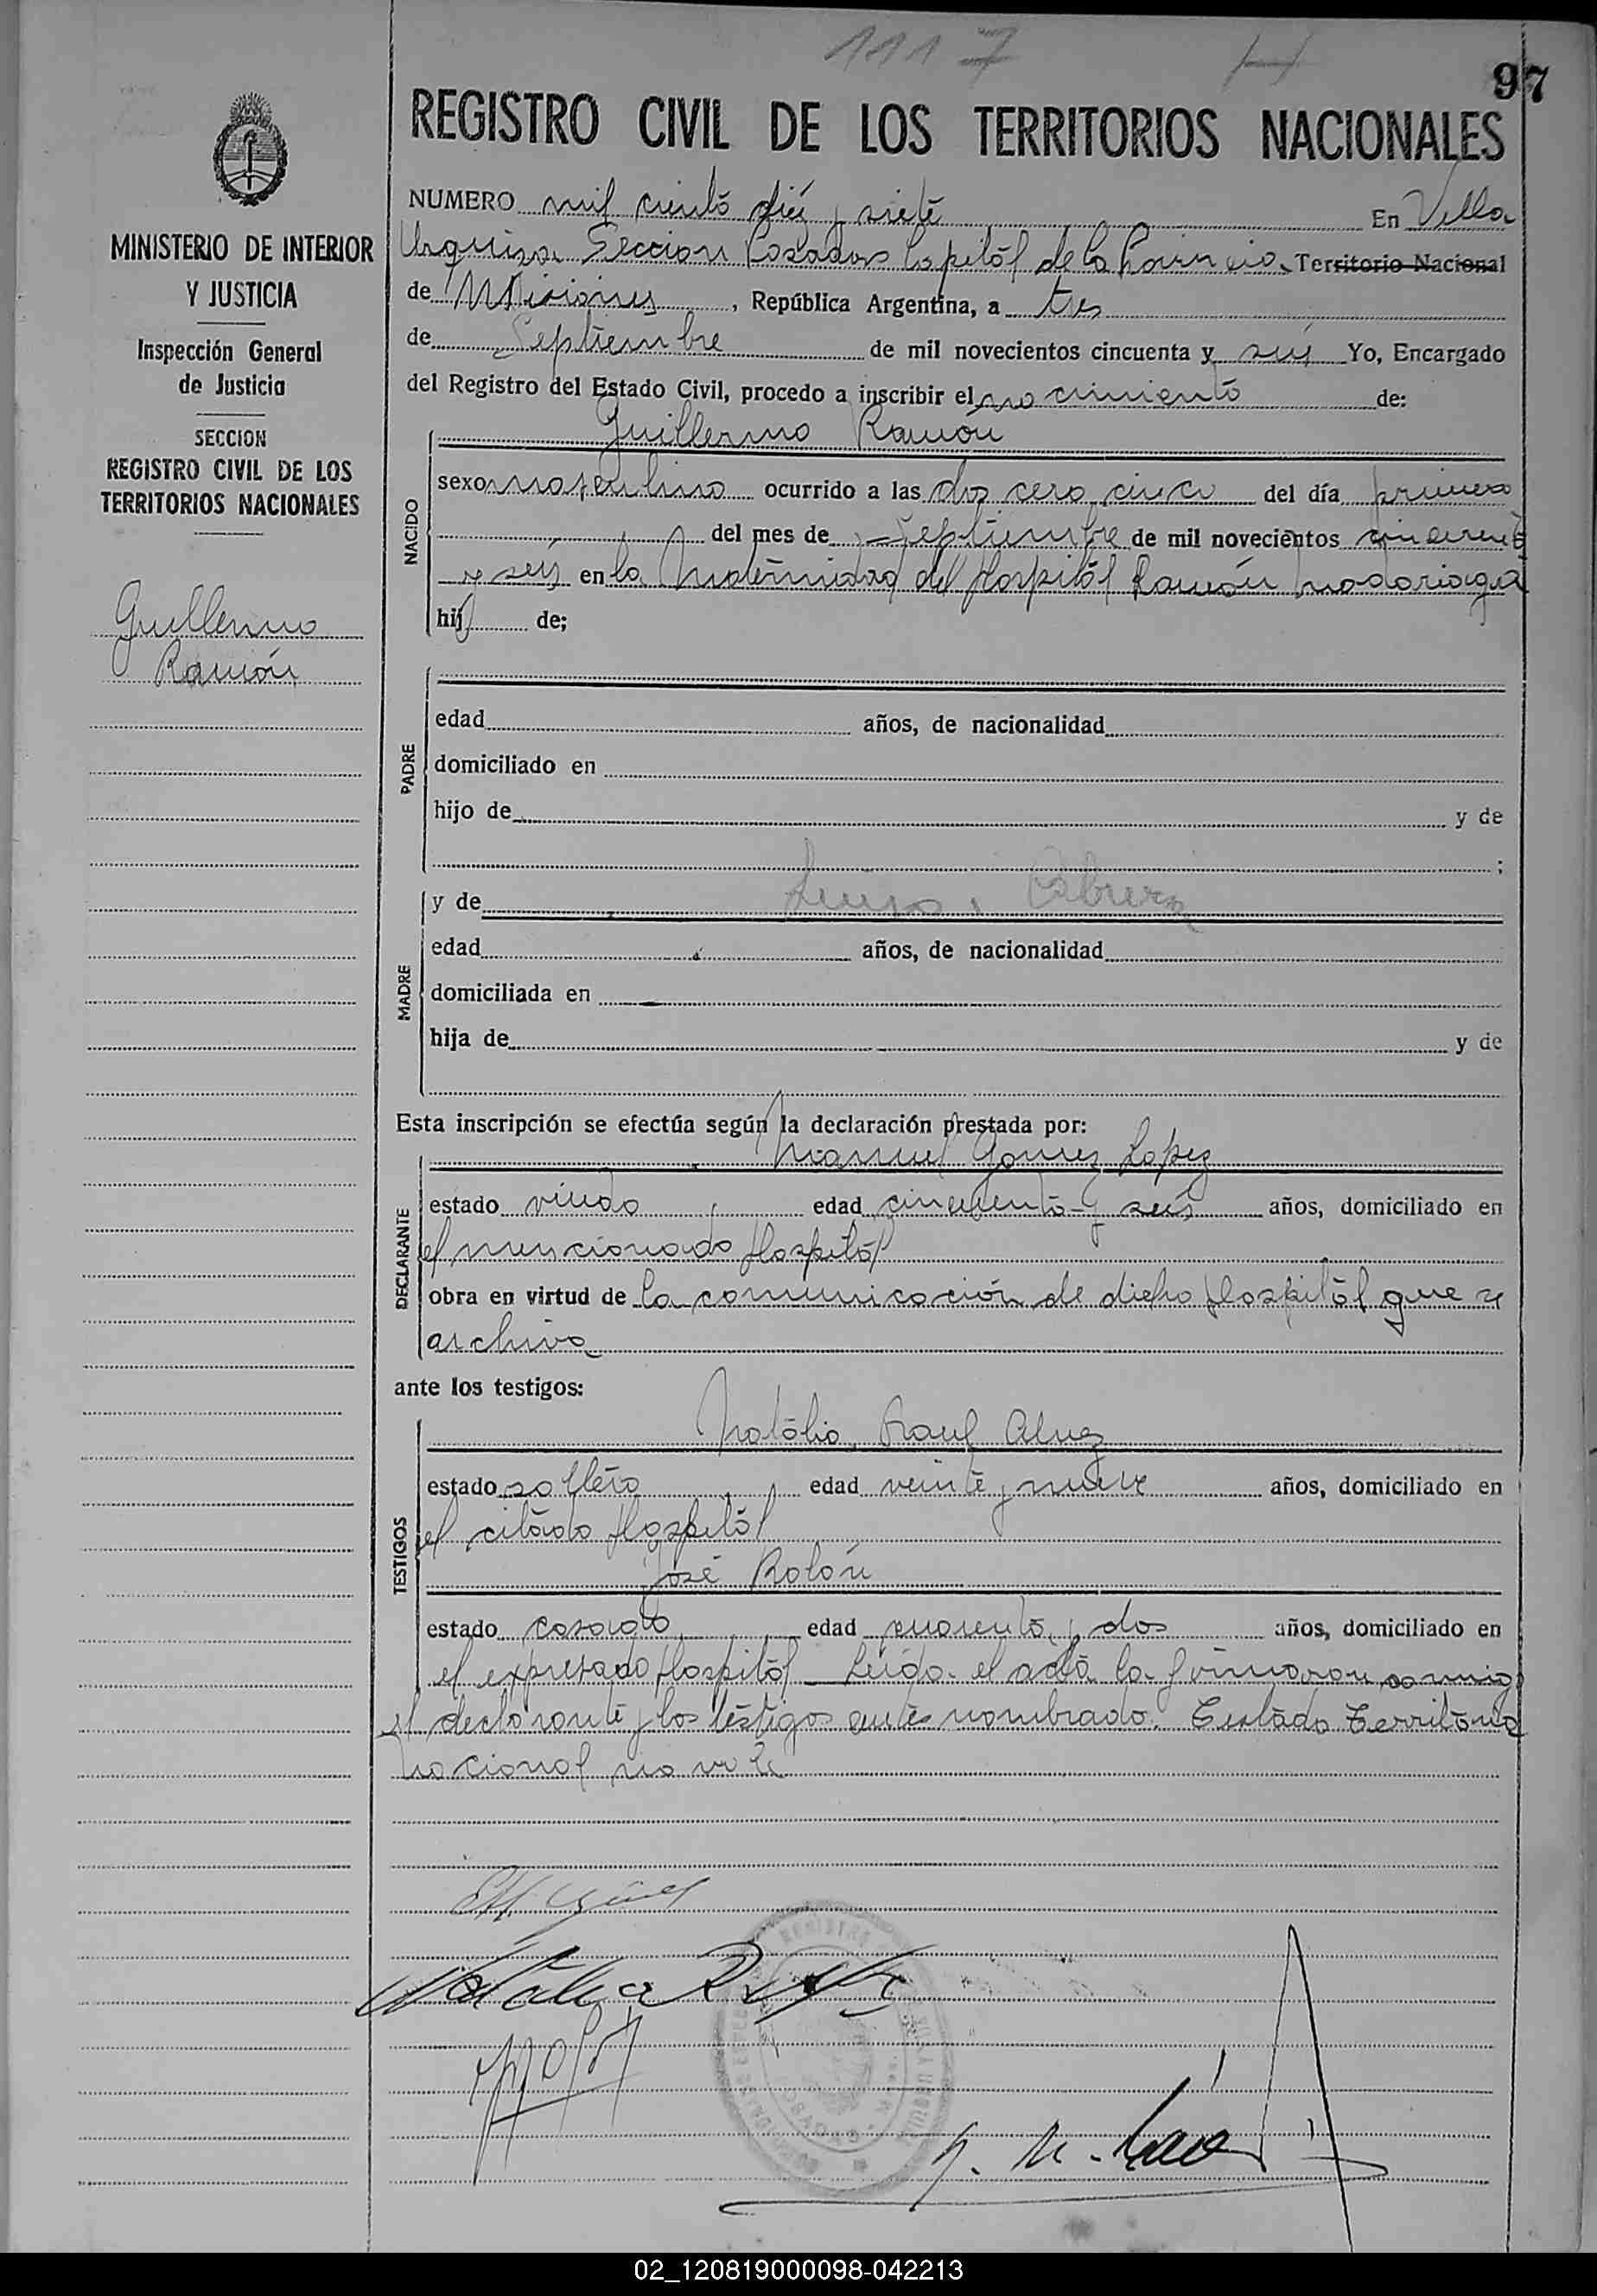 1117
97
REGISTRO CIVIL DE LOS TERRITORIOS NACIONALES
MINISTERIO DE INTERIOR
Y JUSTICIA
Inspección General
de Justicia
SECCION
REGISTRO CIVIL DE LOS
TERRITORIOS NACIONALES
Guillermo
Ramón
NUMERO mil ciento diez y siete En Villa
Urquiza Seccion Posadas Capital de la Provincia Territorio Nacional
de Misiones, República Argentina, a tres
de Septiembre de mil novecientos cincuenta y seis Yo, Encargado
del Registro del Estado Civil, procedo a inscribir el nacimiento de:
Guillermo Ramón
NACIDO
sexo masculino ocurrido a las dos cero cinco del día primero
del mes de Septiembre de mil novecientos cincuenta
y seis en la Maternidad del Hospital Ramón Madariaga
hij de;
PADRE
edad años, de nacionalidad
domiciliado en
hijo de y de
;
MADRE
y de Luisa Cabrera
edad años, de nacionalidad
domiciliada en
hija de y de
Esta inscripción se efectúa según la declaración prestada por:
Manuel Gomez Lopez
DECLARANTE
estado viudo edad cincuenta y seis años, domiciliado en
el mencionado Hospital
obra en virtud de la comunicación de dicho Hospital que se
archiva
ante los testigos:
TESTIGOS
Natalio Raul Alvez
estado soltero edad veinte y nueve años, domiciliado en
el citado Hospital
José Rolón
estado casado edad cuarenta y dos años, domiciliado en
el expresado Hospital Leída el acta la firmaron conmigo
el declarante y los testigos antes nombrado. Testado Territorio
Nacional no vale
02_120819000098-042213